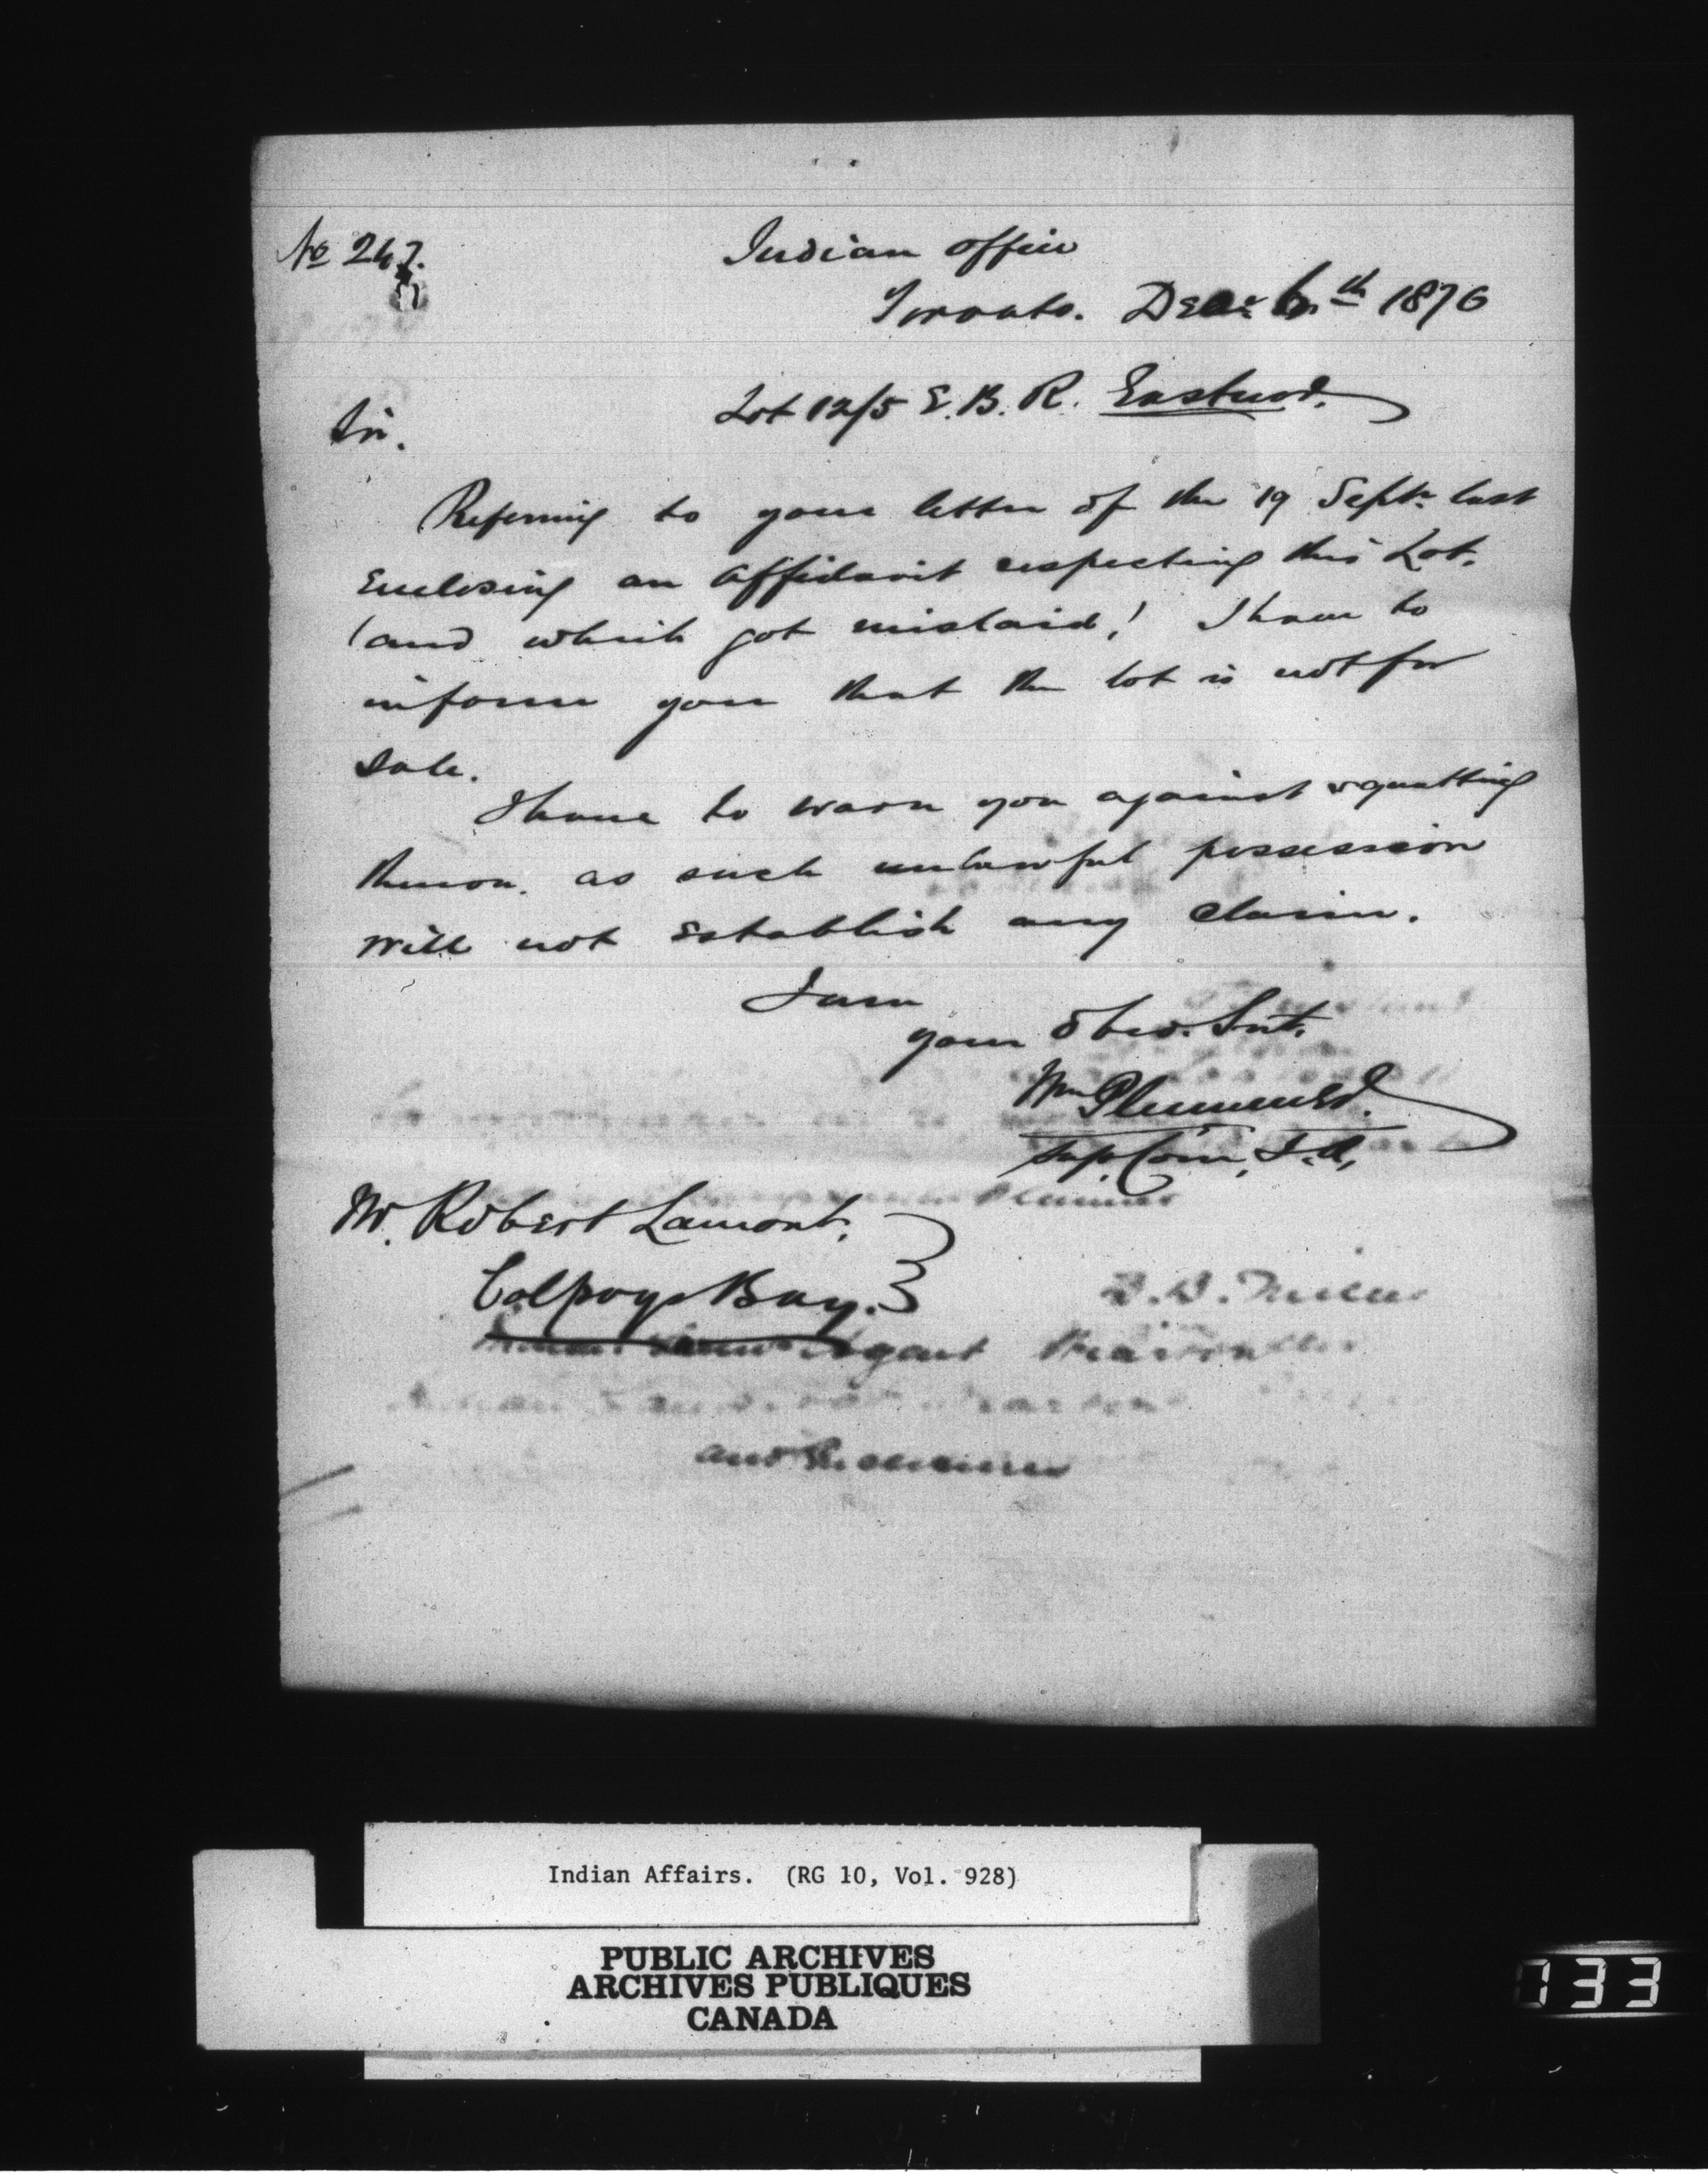 No 247.
Indian Office
Toronto. Decr 6th 1876
Lot 12/5 E. B. R. Eastnor.
Sir.
Referring to your letter of the 19 Septr last
Enclosing an Affidavit respecting this Lot.
(and which got mislaid,) I have to
inform you that the lot is not for
Sale.
I have to warn you against squatting
thereon. as such unlawful possession
will not Establish any Claim.
I am
your Obed. Svt.
Wm Plummer
Sup. Com. I. A.
Mr. Robert Lamont,
Colpoys Bay.
Agent
Plummer
and
Indian Affairs. (RG 10, Vol. 928)
PUBLIC ARCHIVES
ARCHIVES PUBLIQUES
CANADA
733